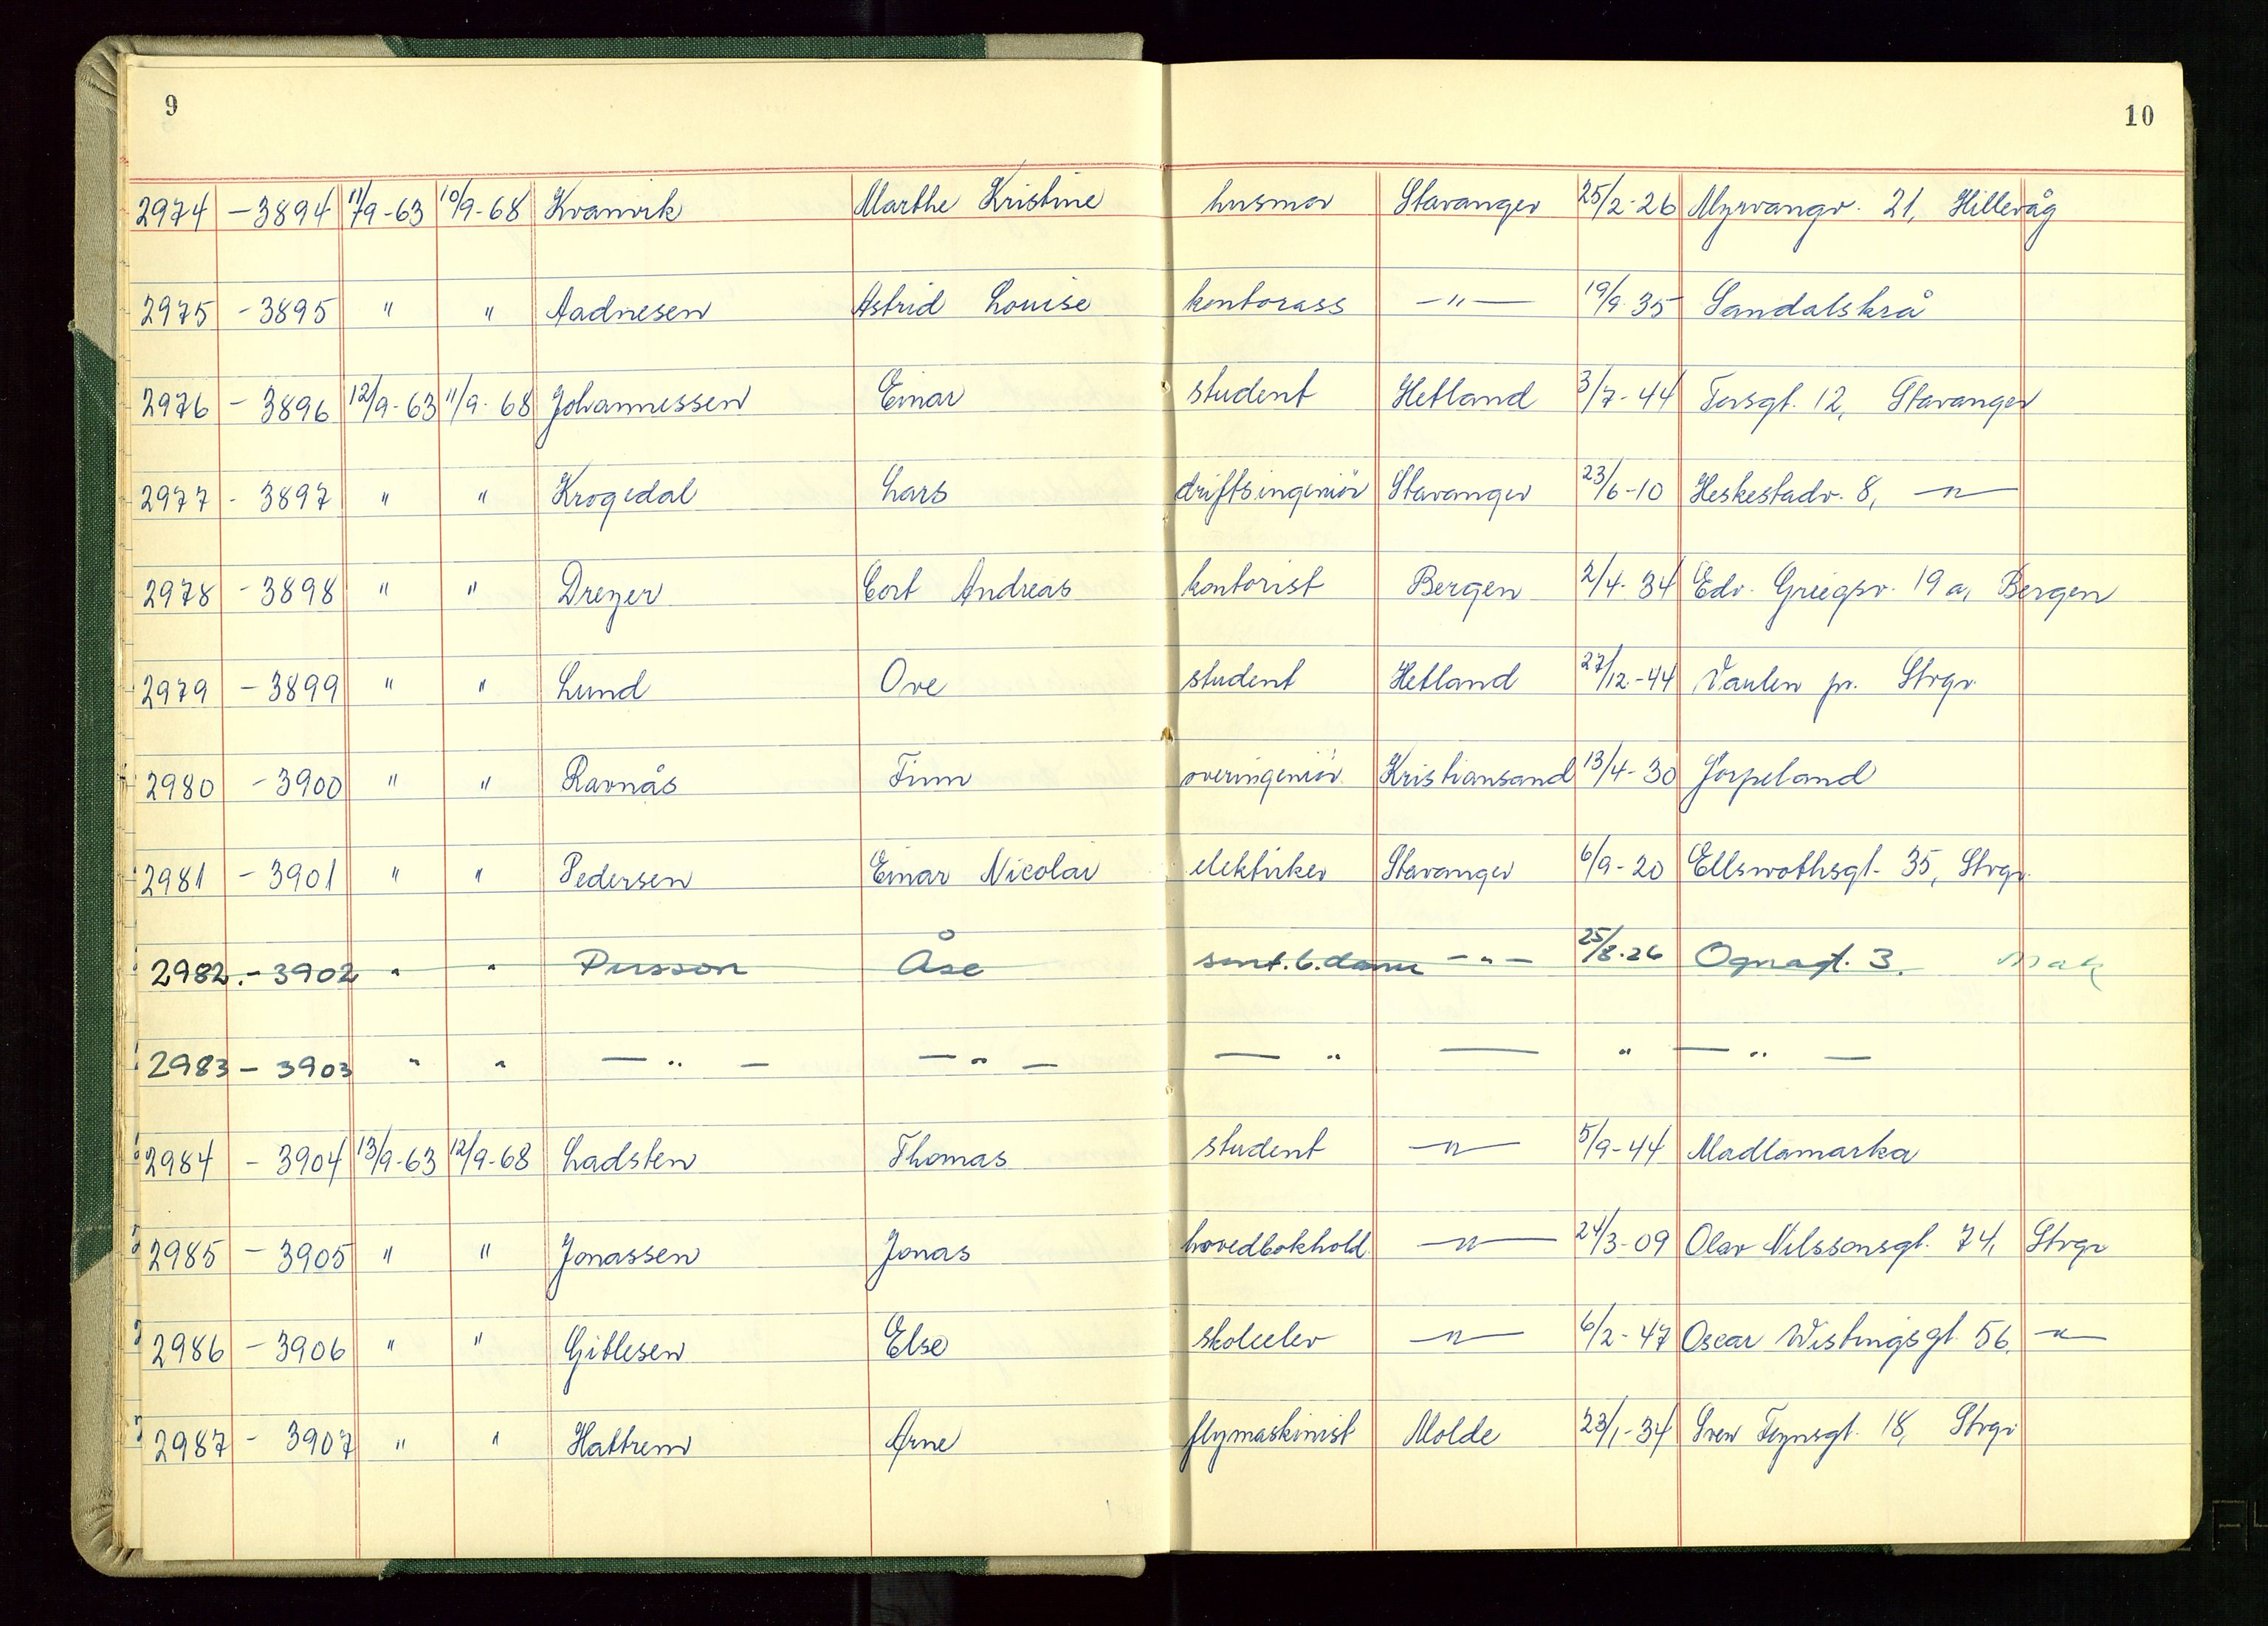 9
10
2974 - 3894 11/9-63 10/9-68 Kvanvik Marthe Kristine husmor Stavanger 25/2-26 Myrvangv. 21, Hillevåg
2975 - 3895 " " Aadnesen Astrid Louise kontorass —"— 19/9-35 Sandalskrå
2976 - 3896 12/9-63 11/9-68 Johannessen Einar student Hetland 3/7-44 Torsgt. 12, Stavanger
2977 - 3897 " " Krogedal Lars driftsingeniör Stavanger 23/6-10 Heskestadv. 8, —"—
2978 - 3898 " " Dreyer Cort Andreas kontorist Bergen 2/4-34 Edv. Griegsv. 19 a, Bergen
2979 - 3899 " " Lund Ove student Hetland 27/12-44 Vaulen pr. Stvgr.
2980 - 3900 " " Ravnås Finn overingeniör Kristiansand 13/4-30 Jörpeland
2981 - 3901 " " Pedersen Einar Nicolai elektriker Stavanger 6/9-20 Ellswothsgt. 35, Stvgr.
2982 - 3902 " " Persson Åse sent.b.dame -"- 25/8-26 Ognagt. 3. Mak
2983 - 3903 " " —"— —"— — " — " — " —
2984 - 3904 13/9-63 12/9-68 Ladsten Thomas student —"— 5/9-44 Madlamarka
2985 - 3905 " " Jonassen Jonas hovedbokhold. —"— 24/3-09 Olav Nilssonsgt. 74, Stvgr
2986 - 3906 " " Gitlesen Else skoleelev —"— 6/2-47 Oscar Wistingsgt. 56, —"—
2987 - 3907 " " Hattrem Arne flymaskinist Molde 23/1-34 Sven Foynsgt. 18, Stvgr